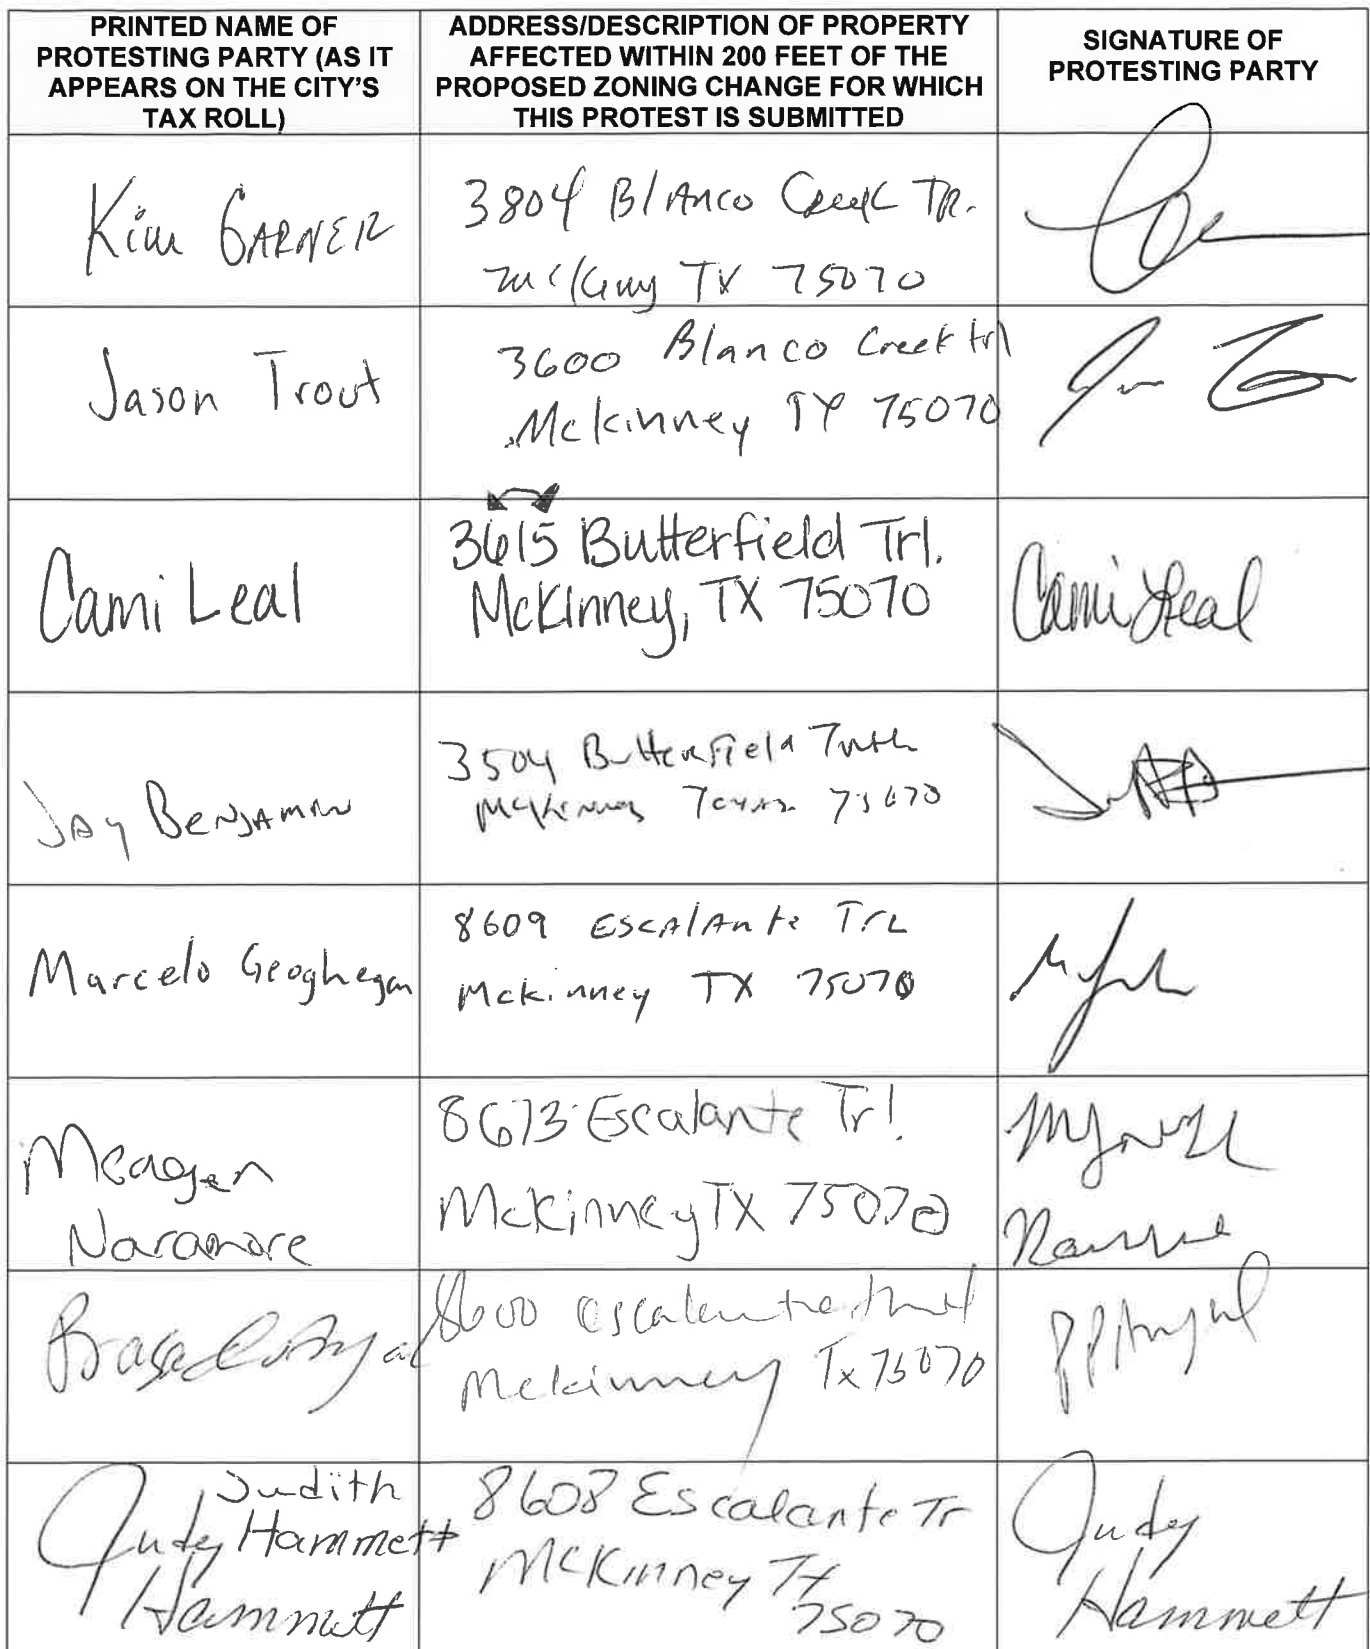 PRINTED NAME OF
PROTESTING PARTY (AS IT
APPEARS ON THE CITY'S
TAX ROLL)
ADDRESS/DESCRIPTION OF PROPERTY
AFFECTED WITHIN 200 FEET OF THE
PROPOSED ZONING CHANGE FOR WHICH
THIS PROTEST IS SUBMITTED
SIGNATURE OF
PROTESTING PARTY
Kim GARNER
3804 Blanco Creek TR.
McKinney TX 75070
Jason Trout
3600 Blanco Creek trl
Mckinney TX 75070
Cami Leal
3615 Butterfield Trl.
McKinney, TX 75070
Cami Leal
JAY BENJAMIN
3504 Butterfield
McKinney Texas 75070
Marcelo Geoghegan
8609 EscAlAnte TrL
Mckinney TX 75070
Meagen
Naramore
8613 Escalante Trl.
McKinney TX 75070
8600 escalante
Mckinney Tx 75070
Judith
Judy Hammett
Hammett
8608 Escalante Tr
McKinney TX
75070
Judy
Hammett